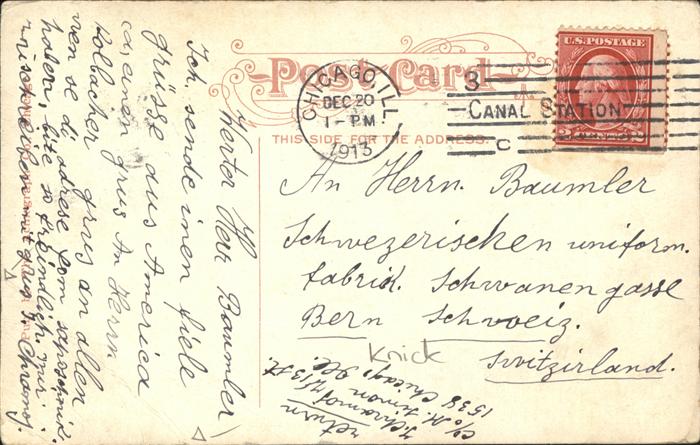 Post Card
THIS SIDE FOR THE ADDRESS.
CHICAGO, ILL.
DEC 20
1-PM
1913
3
CANAL STATION
C
U.S. POSTAGE
2 CENTS 2
An Herrn. Baumler
Schwezerischen uniform.
fabrik. Schwanen gasse
Bern Schweiz.
Switzirland.
Knick
Werter Herr Baumler
Ich sende inen fiele
Grüsse aus America
einen grus An Herrn
Kolbacher grus an allen
wen se di adrese fom
haben, bite so freindlich
mit grus
return
1538 Chicago, Ill.